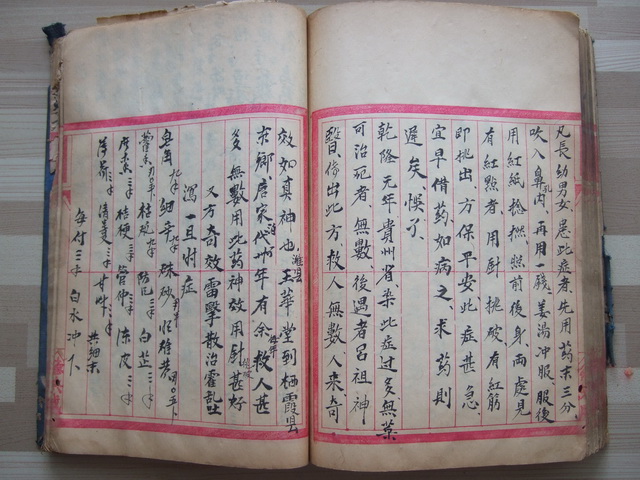 凡長幼男女患此症者先用药末三分
吹入鼻孔内再用一錢姜湯冲服服後
用紅紙捻撚照前後身兩處見
有紅點者用針挑破有紅筋
即挑出方保平安此症甚急
宜早借药如病之求药則
遲矣悞了
乾隆元年貴州省染此症过多無药
可治死者無數後遇者呂祖神
醫傳出此方救人無數人來奇
效如真神也濰县王華堂到栖霞县
宋鄉唐宋代州年有余救人甚
多無數用此药神效用針甚好
又方奇效雷擊散治霍乱吐
瀉一旦時症
皂角 細辛 硃砂
藿香 枯矾 防风 白芷
木香 桔梗 管仲 陈皮
薄荷 清半夏 甘草 共細末
每付三 白水冲下